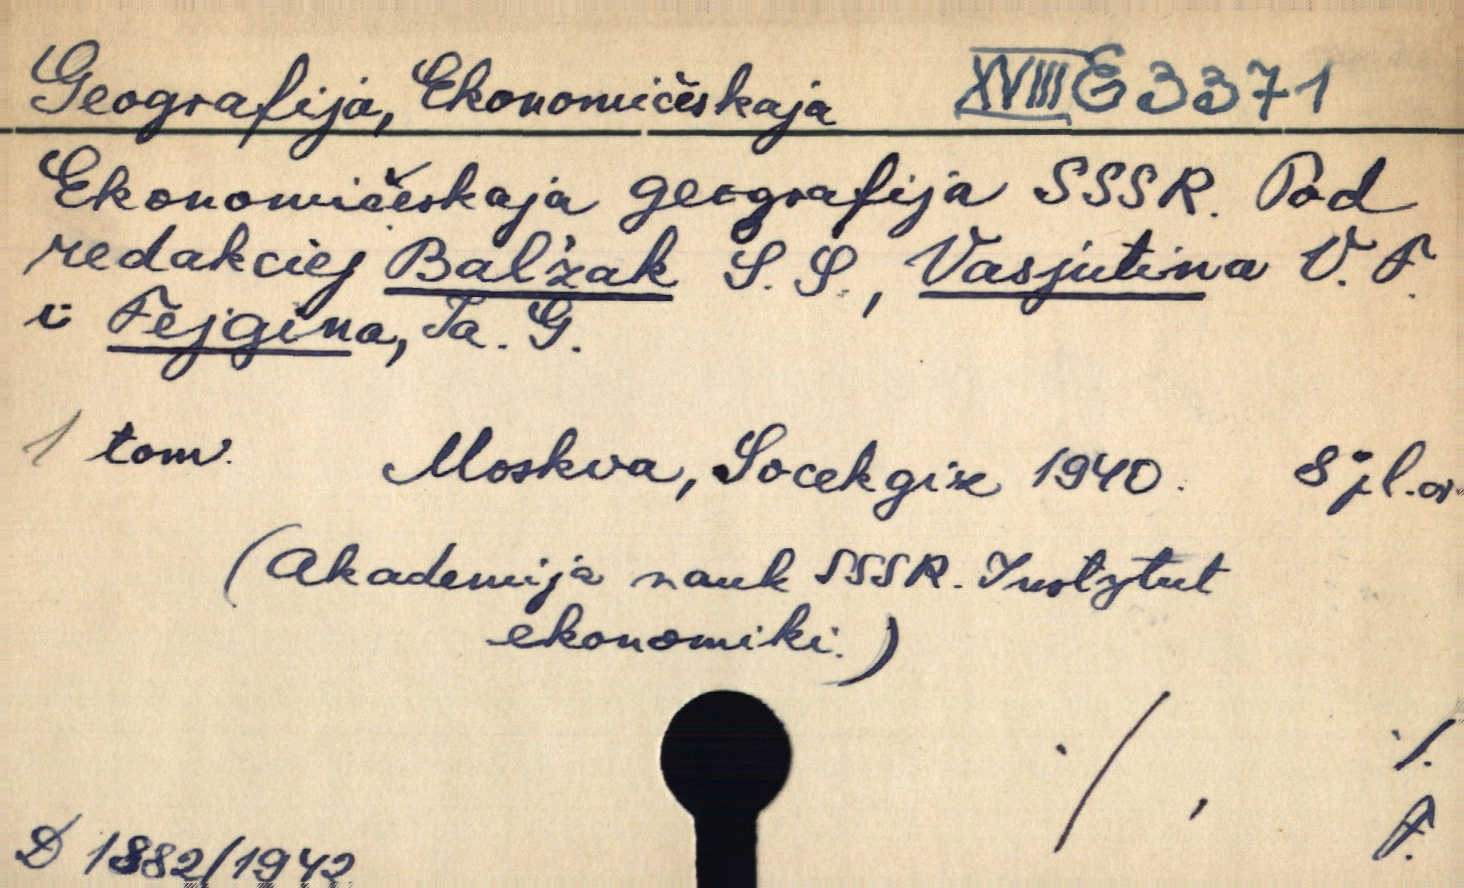 Geografija, Ekonomičeskaja XVIII E 3371
Ekonomičeskaja geografija SSSR. Pod
redakciej Balʹzak S.S., Vasjutina V. F.
i Fejgina, Ja. G.
1 tom. Moskva, Socekgiz 1940. 8j. l. or.
(Akademija nauk SSSR. Instytut
ekonomiki.)
·/. ·/.
F.
D 1882/1942